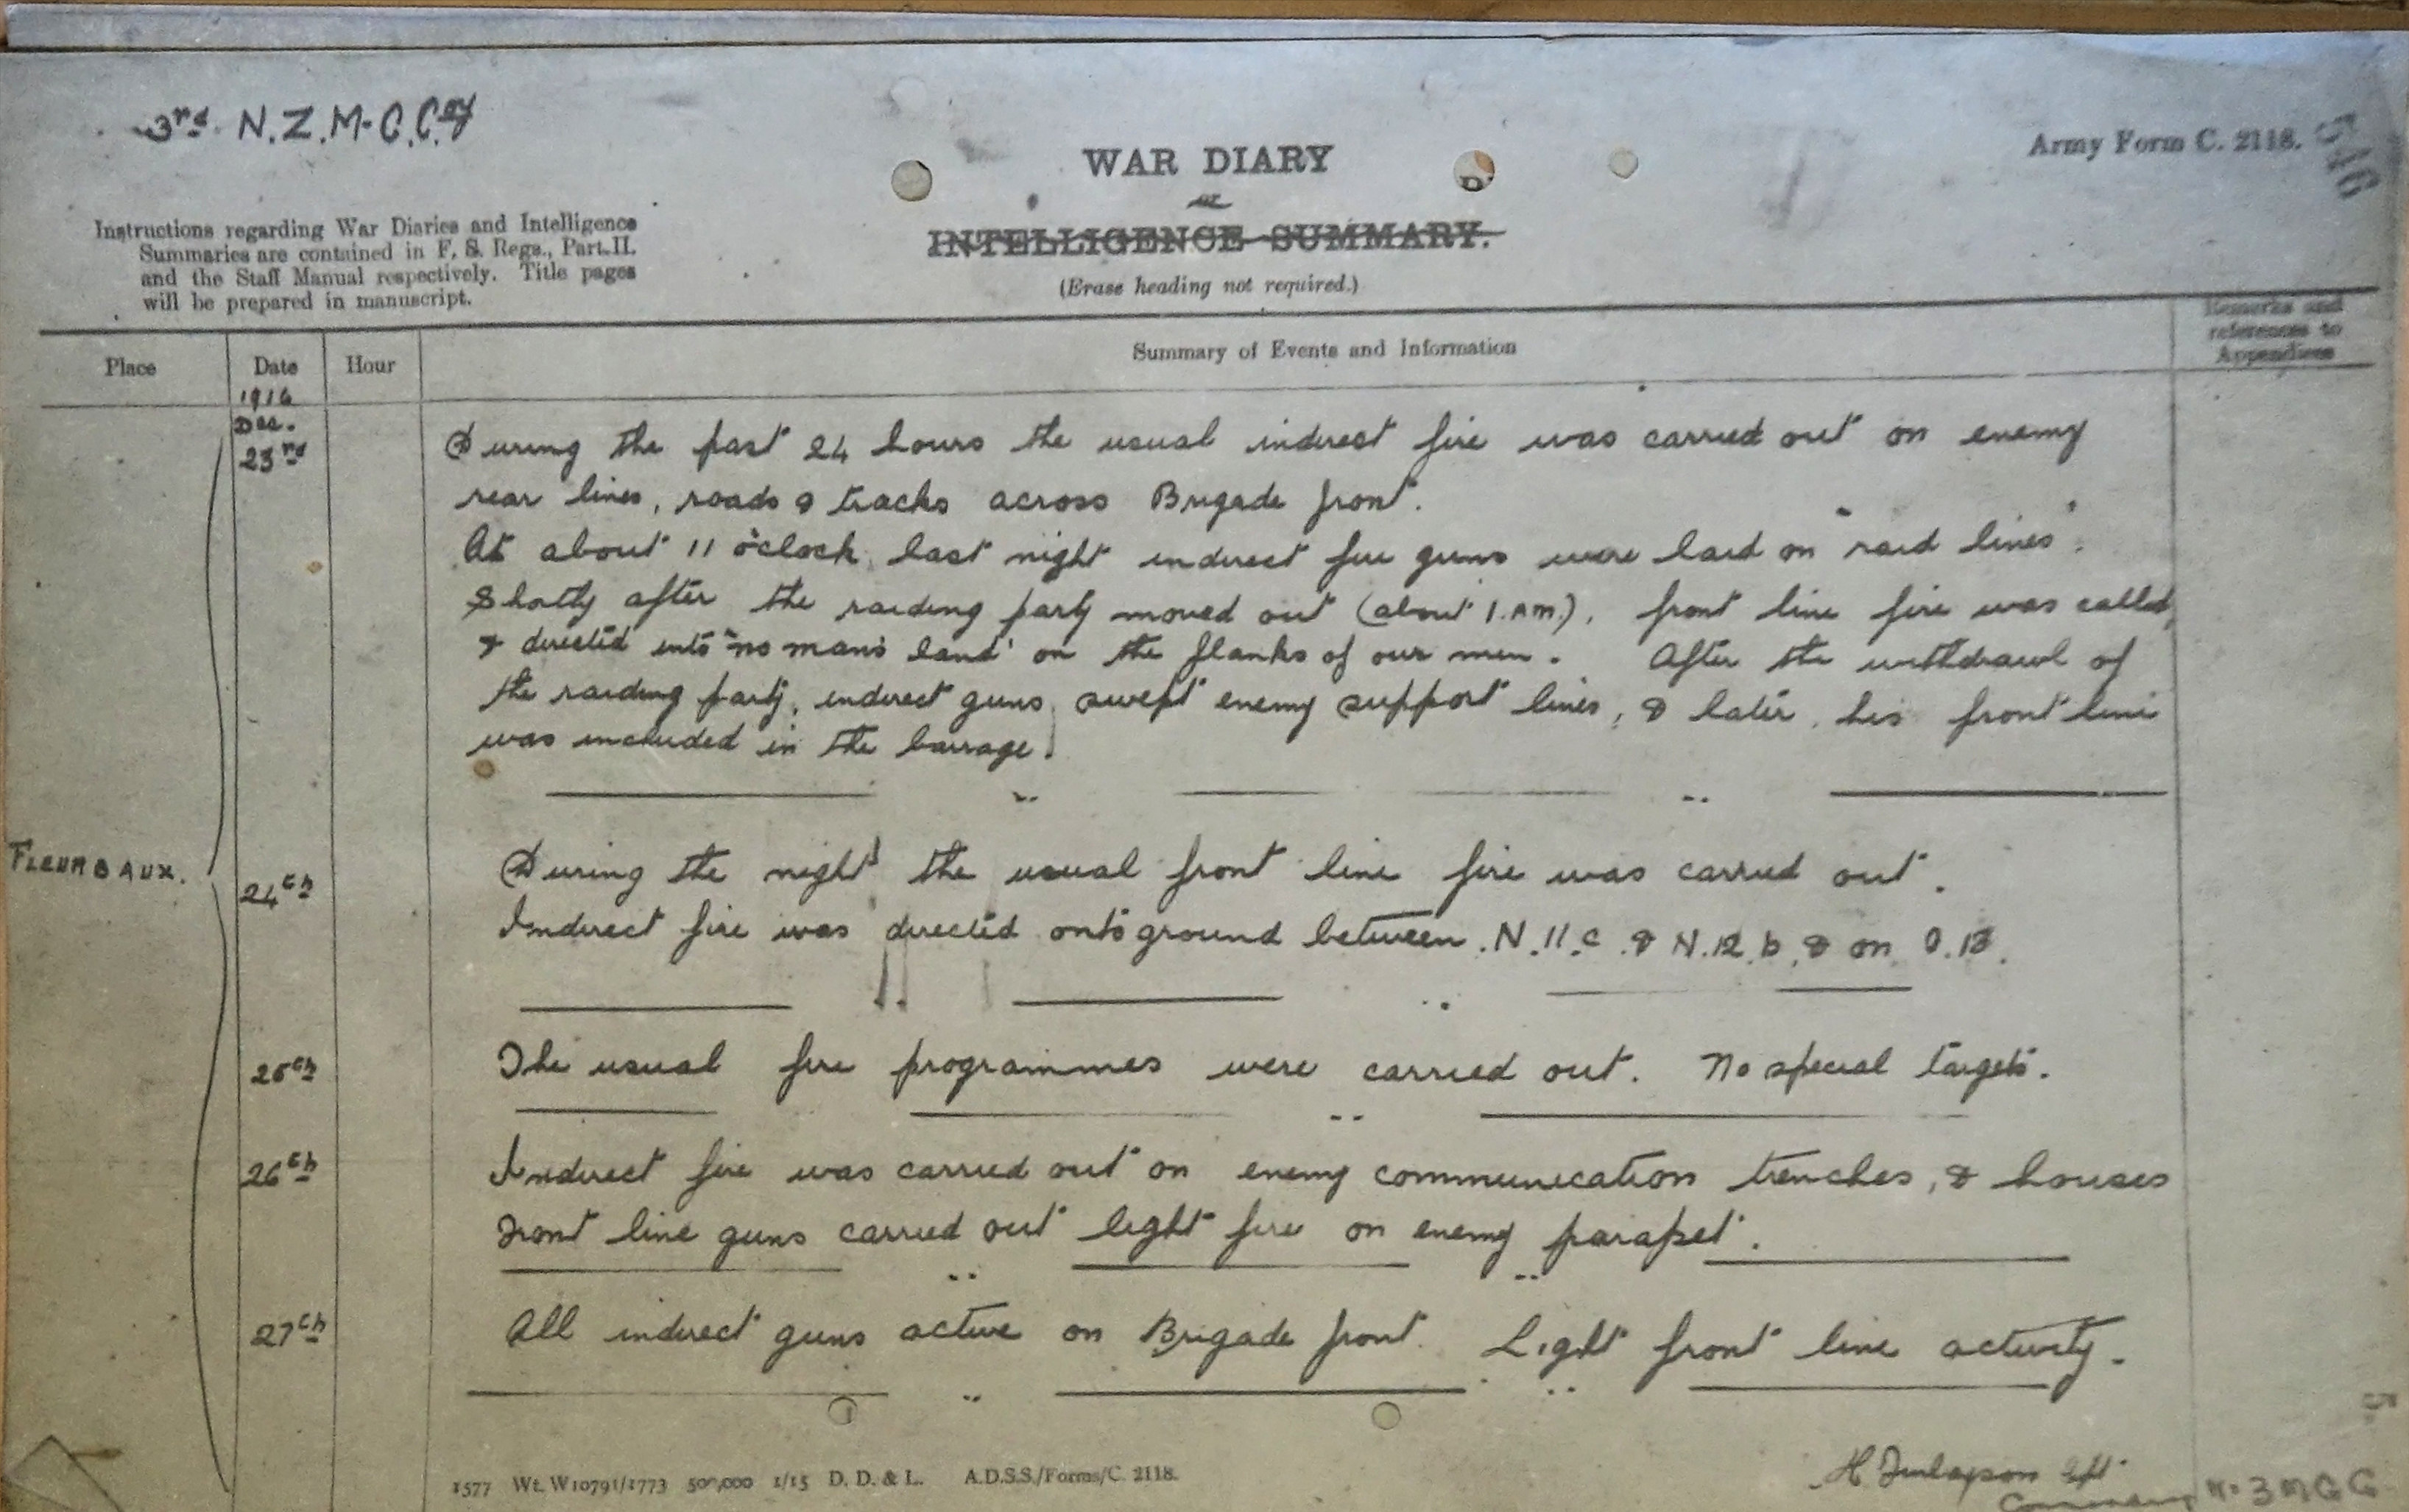 3rd N.Z.M.G.Coy
Army Form C. 2118.
546
WAR DIARY
or
INTELLIGENCE SUMMARY.
(Erase heading not required.)
Instructions regarding War Diaries and Intelligence
Summaries are contained in F. S. Regs., Part II.
and the Staff Manual respectively. Title pages
will be prepared in manuscript.
Place
Date
Hour
Summary of Events and Information
Remarks and
references to
Appendices
1916
Dec.
23rd
During the past 24 hours the usual indirect fire was carried out on enemy
rear lines, roads & tracks across Brigade front.
At about 11 o'clock, last night indirect fire guns were laid on "raid lines".
Shortly after the raiding party moved out (about 1.AM.), front line fire was called,
& directed into "no man's land" on the flanks of our men. After the withdrawl of
the raiding party, indirect guns, swept enemy support lines, & later, his front line
was included in the barrage.
FLEURBAUX.
24th
During the night the usual front line fire was carried out.
Indirect fire was directed onto ground between N.11.c & N.12.b, & on O.13.
25th
The usual fire programmes were carried out. No special targets.
26th
Indirect fire was carried out on enemy communication trenches, & houses
Front line guns carried out light fire on enemy parapet.
27th
All indirect guns active on Brigade front. Light front line activity.
1577 Wt. W10791/1773 500,000 1/15 D. D. & L. A.D.S.S./Forms/C. 2118.
H
No 3 MGC